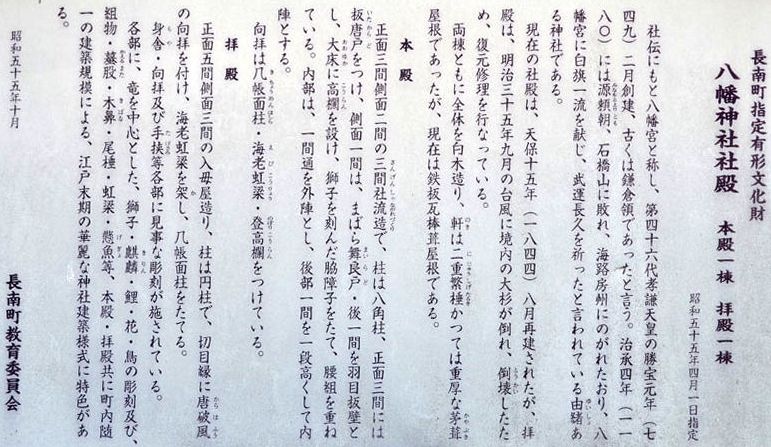 長南町指定有形文化財
八幡神社社殿 本殿一棟 拝殿一棟
昭和五十五年四月一日指定
社伝にもと八幡宮と称し、第四十六代孝謙天皇の勝宝元年（七
四九）二月創建、古くは鎌倉領であったと言う。治承四年（一一
八〇）には源頼朝、石橋山に敗れ、海路房州にのがれたおり、八
幡宮に白旗一流を献じ、武運長久を祈ったと言われている由緒あ
る神社である。
現在の社殿は、天保十五年（一八四四）八月再建されたが、拝
殿は、明治三十五年九月の台風に境内の大杉が倒れ、倒壊したた
め、復元修理を行なっている。
両棟ともに全体を白木造り、軒は二重繁棰かつては重厚な茅葺
屋根であったが、現在は鉄板瓦棒葺屋根である。
本殿
正面三間側面二間の三間社流造で、柱は八角柱、正面三間には
板唐戸をつけ、側面一間は、まばら舞良戸・後一間を羽目板壁と
し、大床に高欄を設け、獅子を刻んだ脇障子をたて、腰組を重ね
ている。内部は、一間通を外陣とし、後部一間を一段高くして内
陣とする。
向拝は几帳面柱・海老虹梁・登高欄をつけている。
拝殿
正面五間側面三間の入母屋造り、柱は円柱で、切目縁に唐破風
の向拝を付け、海老虹梁を架し、几帳面柱をたてる。
身舎・向拝及び手挟等各部に見事な彫刻が施されている。
各部に、竜を中心とした、獅子・麒麟・鯉・花・鳥の彫刻及び、
組物・蟇股・木鼻・尾棰・虹梁・懸魚等、本殿・拝殿共に町内随
一の建築規模による、江戸末期の華麗な神社建築様式に特色があ
る。
昭和五十五年十月
長南町教育委員会